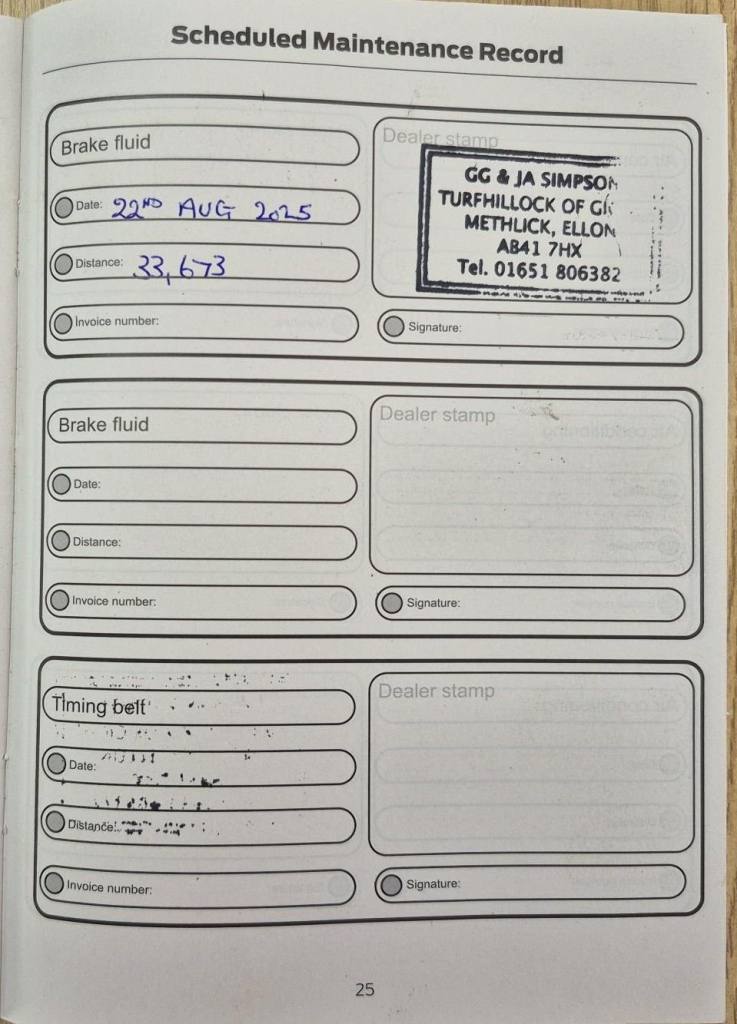 Scheduled Maintenance Record
Brake fluid
Date: 22ND AUG 2025
Distance: 33,673
Invoice number:
Dealer stamp
GG & JA SIMPSON
TURFHILLOCK OF
METHLICK, ELLON
AB41 7HX
Tel. 01651 806382
Signature:
Brake fluid
Date:
Distance:
Invoice number:
Dealer stamp
Signature:
Timing belt
Date:
Distance:
Invoice number:
Dealer stamp
Signature:
25